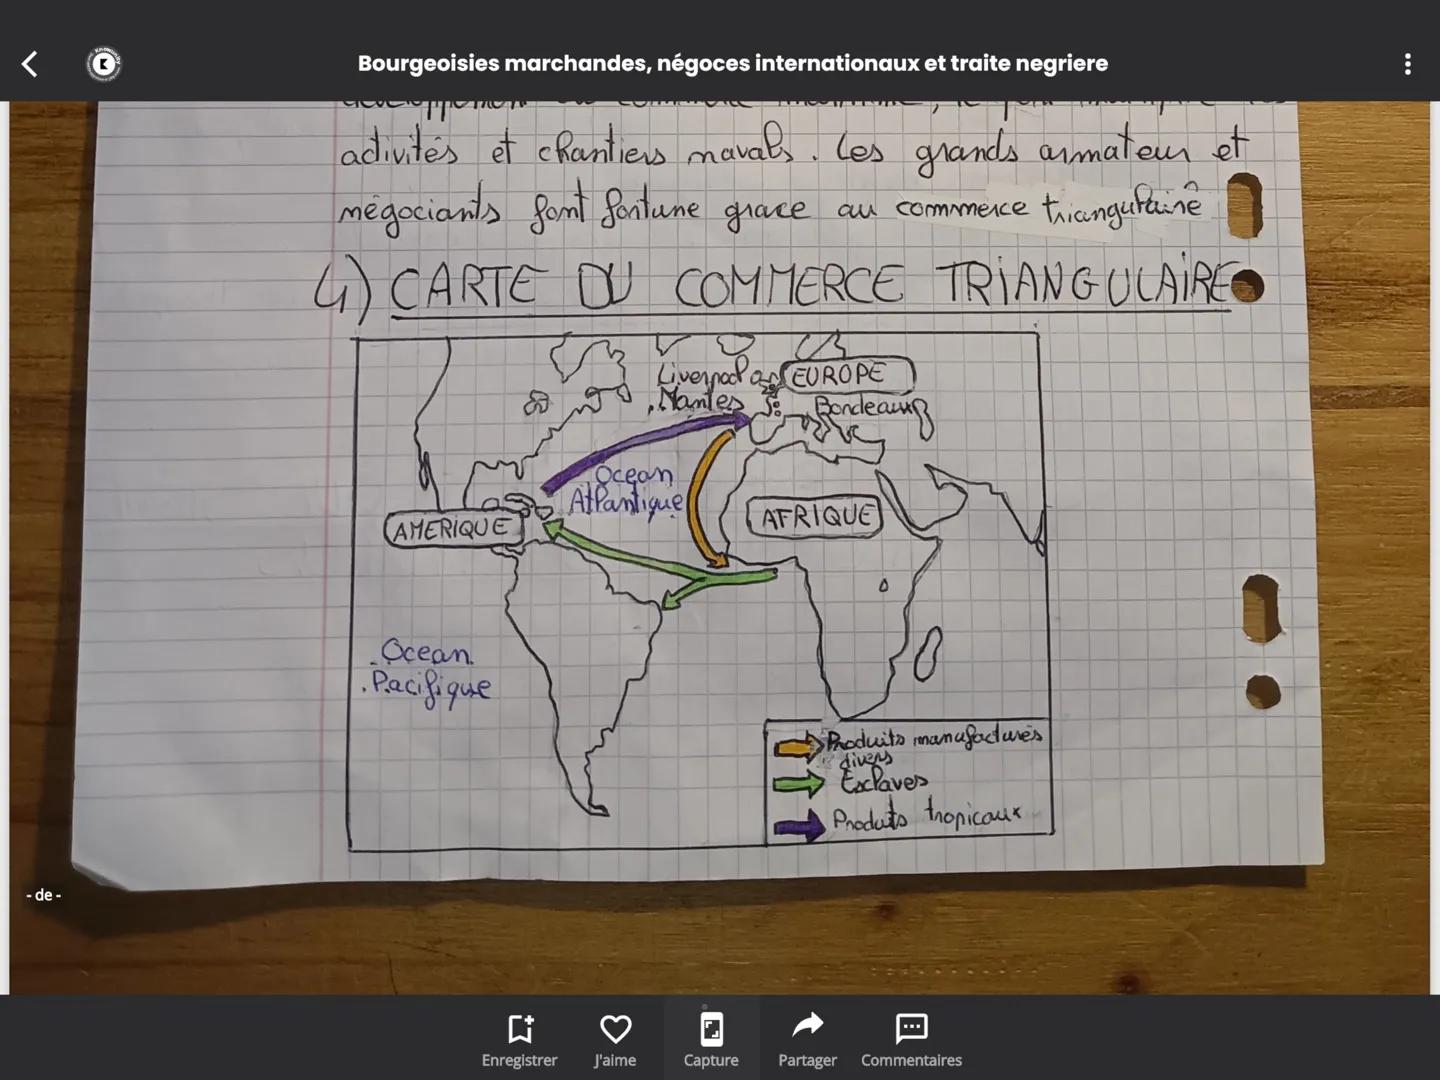 Bourgeoisies marchandes, négoces internationaux et traite negriere
activités et chantiers navals. Les grands armateur et
négociants font fortune grace au commerce triangulaire
4) CARTE DU COMMERCE TRIANGULAIRE
Liverpool
EUROPE
Nantes
Bordeaux
Ocean
Atlantique
AFRIQUE
AMERIQUE
Ocean
Pacifique
Produits manufacturés
divers
Esclaves
Produits tropicaux
- de -
Enregistrer
J'aime
Capture
Partager
Commentaires